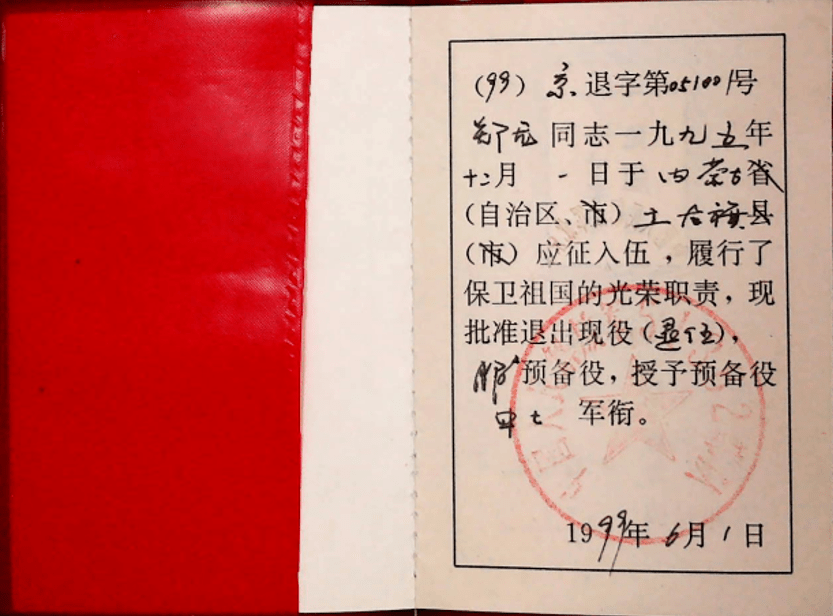 (99) 京退字第051001号
郑龙同志一九九五年
十二月 一日于内蒙古省
(自治区、市)土右旗县
(市)应征入伍,履行了
保卫祖国的光荣职责,现
批准退出现役(退伍),
服预备役,授予预备役
中士 军衔。
1999年6月1日